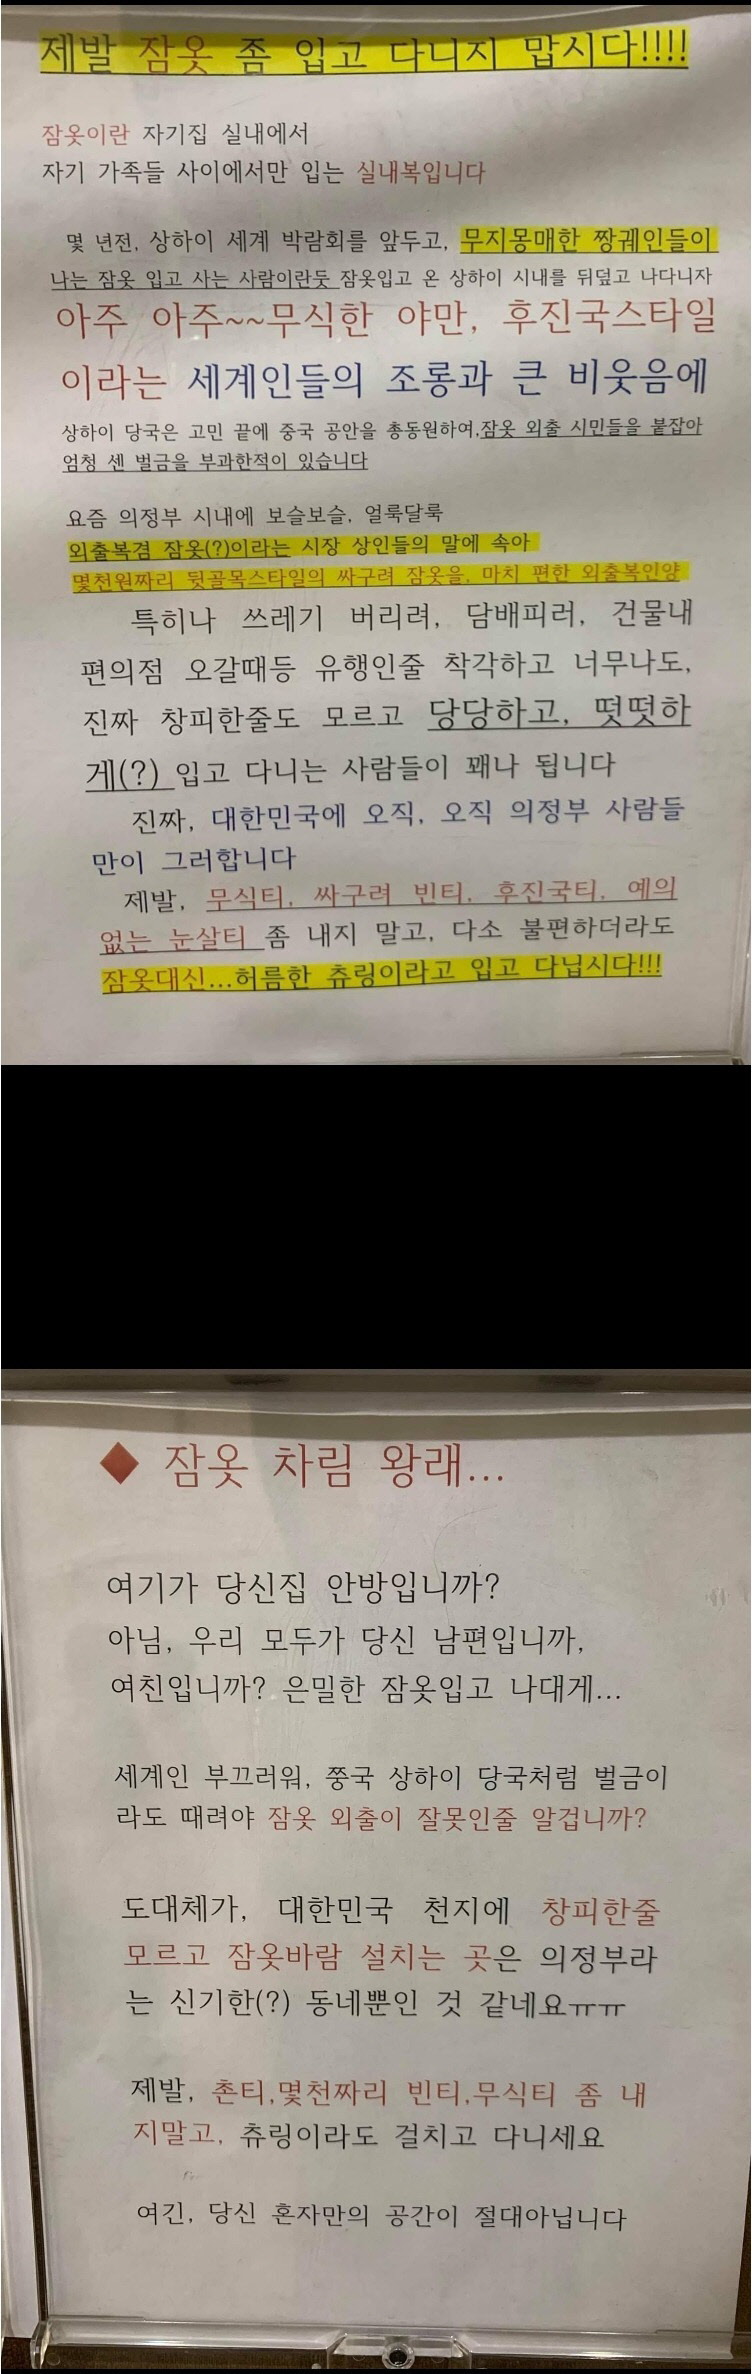 제발 잠옷 좀 입고 다니지 맙시다!!!!
잠옷이란 자기집 실내에서
자기 가족들 사이에서만 입는 실내복입니다
몇 년전, 상하이 세계 박람회를 앞두고, 무지몽매한 짱궤인들이
나는 잠옷 입고 사는 사람이란듯 잠옷입고 온 상하이 시내를 뒤덮고 나다니자
아주 아주~~무식한 야만, 후진국스타일
이라는 세계인들의 조롱과 큰 비웃음에
상하이 당국은 고민 끝에 중국 공안을 총동원하여,잠옷 외출 시민들을 붙잡아
엄청 센 벌금을 부과한적이 있습니다
요즘 의정부 시내에 보슬보슬, 얼룩달룩
외출복겸 잠옷(?)이라는 시장 상인들의 말에 속아
몇천원짜리 뒷골목스타일의 싸구려 잠옷을, 마치 편한 외출복인양
특히나 쓰레기 버리려, 담배피러, 건물내
편의점 오갈때등 유행인줄 착각하고 너무나도,
진짜 창피한줄도 모르고 당당하고, 떳떳하
게(?) 입고 다니는 사람들이 꽤나 됩니다
진짜, 대한민국에 오직, 오직 의정부 사람들
만이 그러합니다
제발, 무식티, 싸구려 빈티, 후진국티, 예의
없는 눈살티 좀 내지 말고, 다소 불편하더라도
잠옷대신...허름한 츄링이라고 입고 다닙시다!!!
◆ 잠옷 차림 왕래...
여기가 당신집 안방입니까?
아님, 우리 모두가 당신 남편입니까,
여친입니까? 은밀한 잠옷입고 나대게...
세계인 부끄러워, 쭝국 상하이 당국처럼 벌금이
라도 때려야 잠옷 외출이 잘못인줄 알겁니까?
도대체가, 대한민국 천지에 창피한줄
모르고 잠옷바람 설치는 곳은 의정부라
는 신기한(?) 동네뿐인 것 같네요ㅠㅠ
제발, 촌티,몇천짜리 빈티,무식티 좀 내
지말고, 츄링이라도 걸치고 다니세요
여긴, 당신 혼자만의 공간이 절대아닙니다